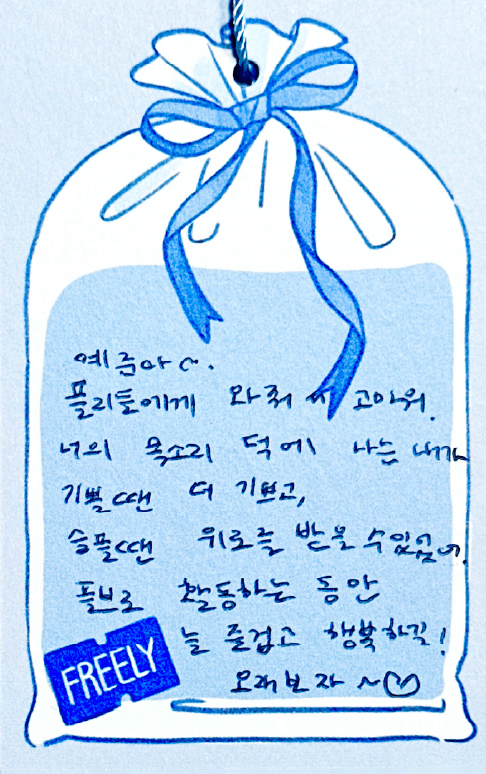 예준아~.
플리들에게 와줘서 고마워.
너의 목소리 덕에 나는 내가
기쁠땐 더 기쁘고,
슬플땐 위로를 받을 수 있었어.
플브로 활동하는 동안
늘 즐겁고 행복하길!
오래보자 ~♡
FREELY